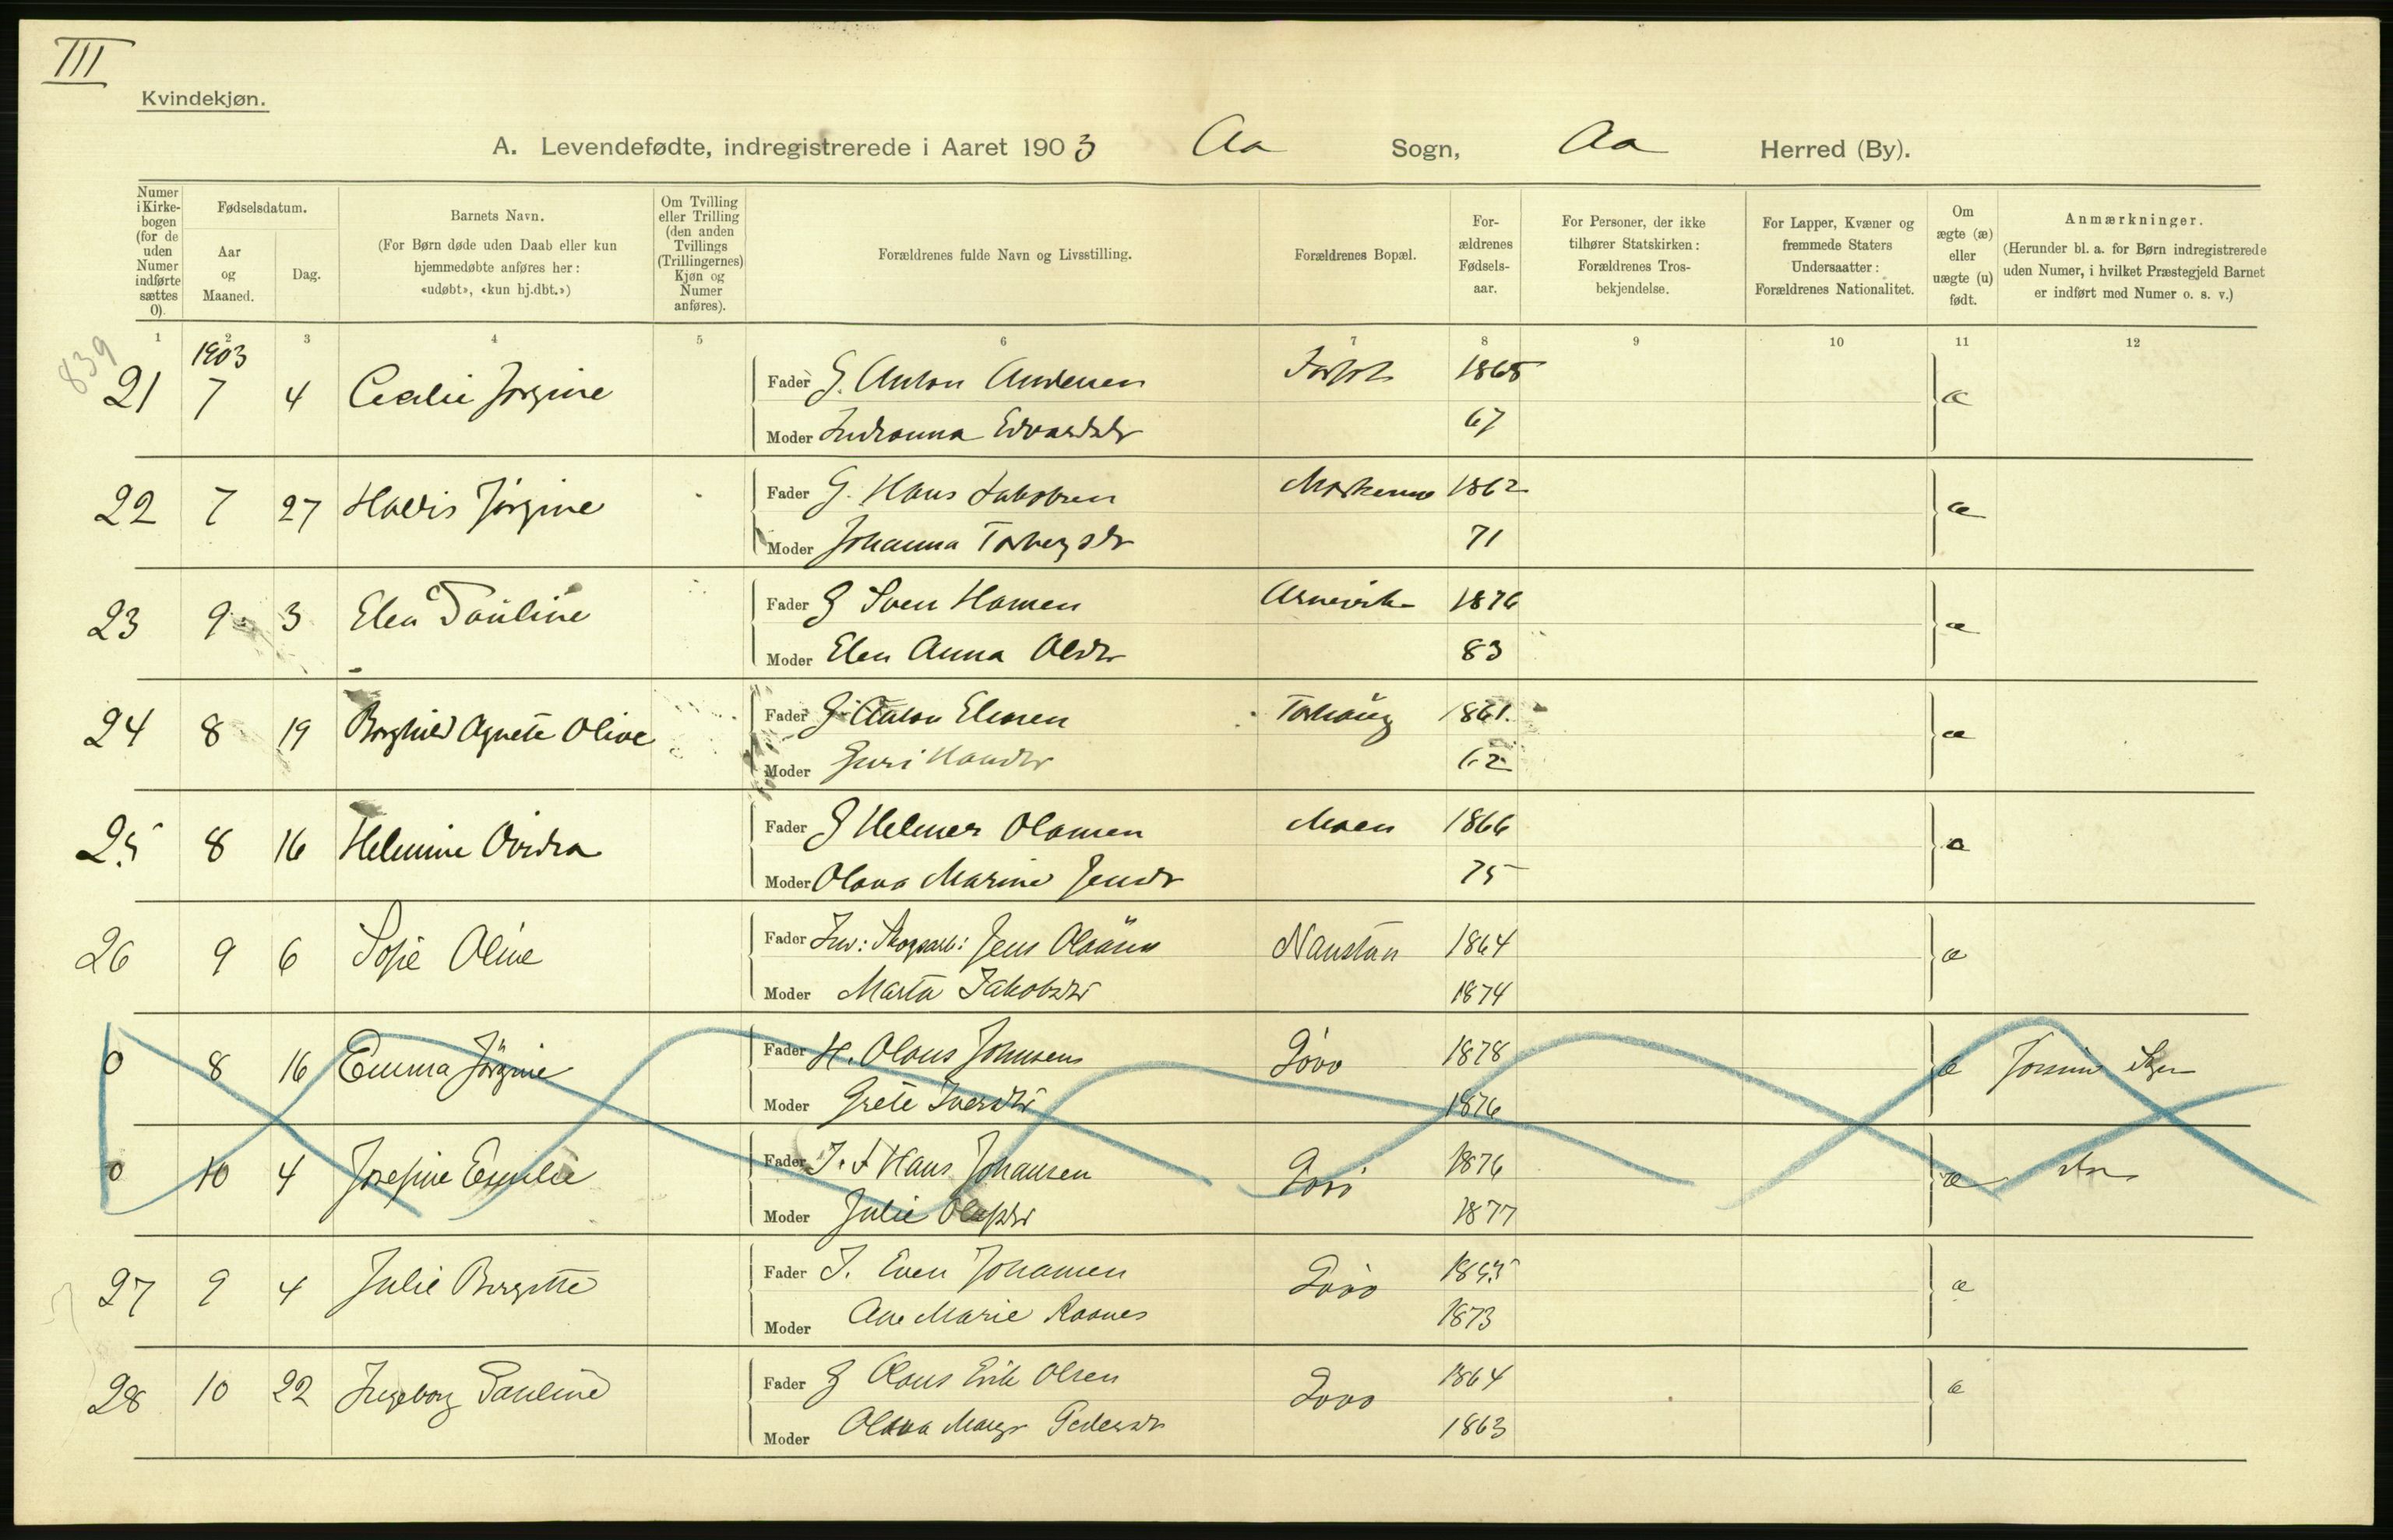 III
Kvindekjøn.
A. Levendefødte, indregistrerede i Aaret 1903 Aa Sogn, Aa Herred (By).
Numer i Kirke-bogen (for de uden Numer indførte sættes 0).
Fødselsdatum.
Aar og Maaned.
Dag.
Barnets Navn.
(For Børn døde uden Daab eller kun hjemmedøbte anføres her: «udøbt», «kun hj.dbt.»)
Om Tvilling eller Trilling (den anden Tvillings (Trillingernes) Kjøn og Numer anføres).
Forældrenes fulde Navn og Livsstilling.
Forældrenes Bopæl.
For-ældrenes Fødsels-aar.
For Personer, der ikke tilhører Statskirken: Forældrenes Tros-bekjendelse.
For Lapper, Kvæner og fremmede Staters Undersaatter: Forældrenes Nationalitet.
Om ægte (æ) eller uægte (u) født.
Anmærkninger.
(Herunder bl. a. for Børn indregistrerede uden Numer, i hvilket Præstegjeld Barnet er indført med Numer o. s. v.)
1 2 3 4 5 6 7 8 9 10 11 12
839
1903
21 7 4 Cecilie Jørgine Fader G. Anton Andersen 1865 æ
Moder Edvardsdr 67
22 7 27 Jørgine Fader G. Hans Jakobsen 1862 æ
Moder Johanna 71
23 9 3 Elen Pauline Fader G Sven Hansen Arnevik 1876 æ
Moder Elen Anna Olsdr 83
24 8 19 Borghild Agnete Olive Fader G Anton Torhaug 1861. æ
Moder Guri Hansdr 62
25 8 16 Helmine Fader G Helmer Olausen Moen 1866 æ
Moder Olava Marine Jensdr 75
26 9 6 Sofie Oline Fader Inv: Jens Naustan 1864 æ
Moder Marta Jakobsdr 1874
0 8 16 Emma Jörgine Fader H. Olaus Johnsen 1878 æ
Moder Grete Iversdr 1876
0 10 4 Josefine Emilie Fader Hans Johansen 1876 æ
Moder Julie 1877
27 9 4 Julie Birgitte Fader J. Even Johansen æ
Moder Ane Marie 1873
28 10 22 Ingeborg Pauline Fader G Olaus Erik Olsen 1864 æ
Moder Olava Pedersdr 1863